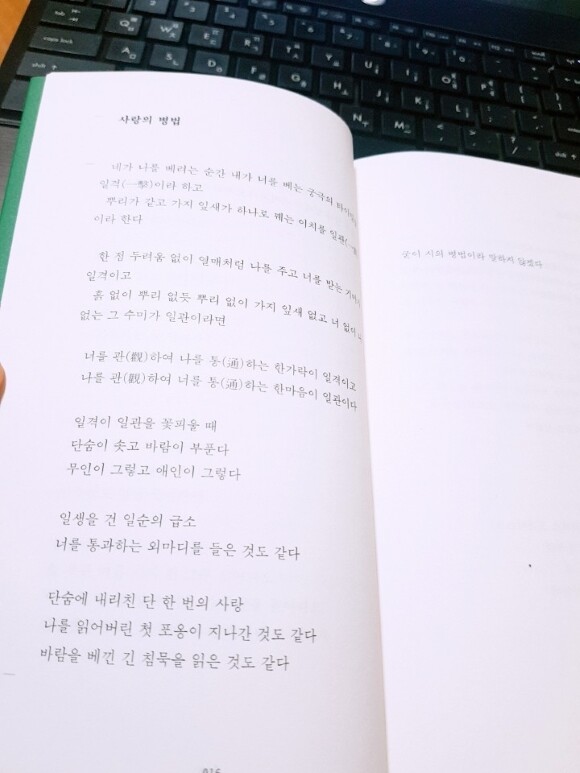 사랑의 병법
네가 나를 베려는 순간 내가 너를 베는 궁극의
일격(一擊)이라 하고
뿌리가 같고 가지 잎새가 하나로 꿰는 이치를 일관(
이라 한다
한 점 두려움 없이 열매처럼 나를 주고 너를 받는
일격이고
흙 없이 뿌리 없듯 뿌리 없이 가지 잎새 없고 너 없이
없는 그 수미가 일관이라면
너를 관(觀)하여 나를 통(通)하는 한가락이 일격이고
나를 관(觀)하여 너를 통(通)하는 한마음이 일관이다
일격이 일관을 꽃피울 때
단숨이 솟고 바람이 부푼다
무인이 그렇고 애인이 그렇다
일생을 건 일순의 급소
너를 통과하는 외마디를 들은 것도 같다
단숨에 내리친 단 한 번의 사랑
나를 읽어버린 첫 포옹이 지나간 것도 같다
바람을 베낀 긴 침묵을 읽은 것도 같다
굳이 시의 병법이라 말하지 않겠다